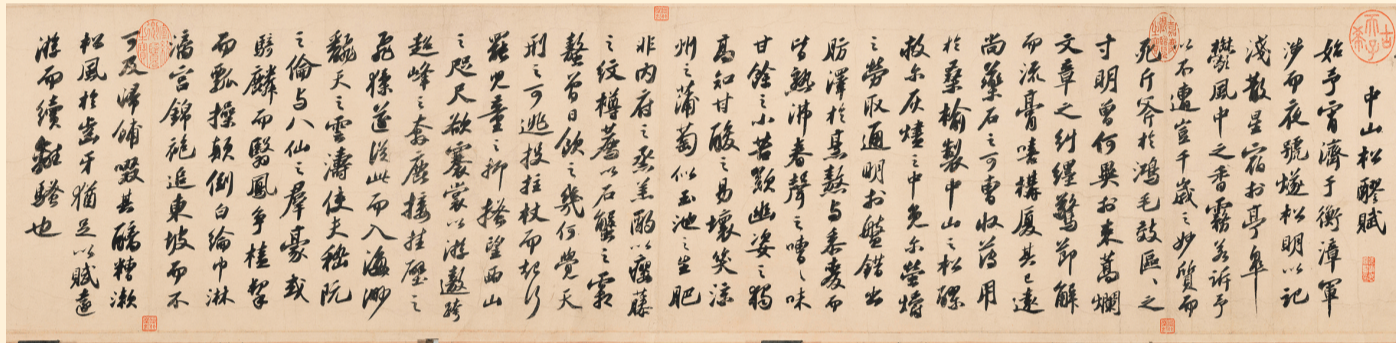 中山松醪賦
始予宵濟于衡漳軍
涉而夜號燧松明以記
淺散星宿於亭皋
鬱風中之香霧若訴予
以不遭豈千歲之妙質而
死斤斧於鴻毛效區區之
寸明曾何異於束蒿爛
文章之糾纆驚節解
而流膏嘻構廈其已遠
尚藥石之可曹收薄用
於桑榆製中山之松醪
救尔灰燼之中免尔螢爝
之勞取通明於盤錯出
肪澤於烹熬與黍麥而
皆熟沸舂聲之嘈嘈味
甘餘之小苦歎幽姿之獨
高知甘酸之易壞笑涼
州之蒲萄似玉池之生肥
非內府之烝羔酌以癭藤
之紋樽薦以石蟹之霜
螯曾日飲之幾何覺天
刑之可逃投拄杖而起行
罷兒童之抑搔望西山
之咫尺欲褰裳以游遨跨
超峰之奔鹿接挂壁之
飛猱遂從此而入海渺
翻天之雲濤使夫嵇阮
之倫與八仙之羣豪或
騎麟而翳鳳爭榼挈
而瓢操顛倒白綸巾淋
漓宮錦袍追東坡而不
可及歸餔歠其醨糟漱
松風於齒牙猶足以賦遠
游而續離騷也
古希天子